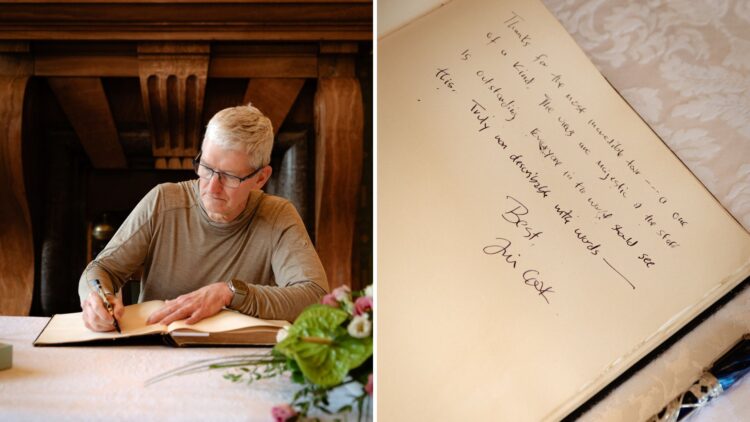 Thanks for the most incredible tour --- a one
of a kind. The views are majestic & the staff
is outstanding. Everyone in the world should see
this. Truly un describable with words —
Best,
Tim Cook